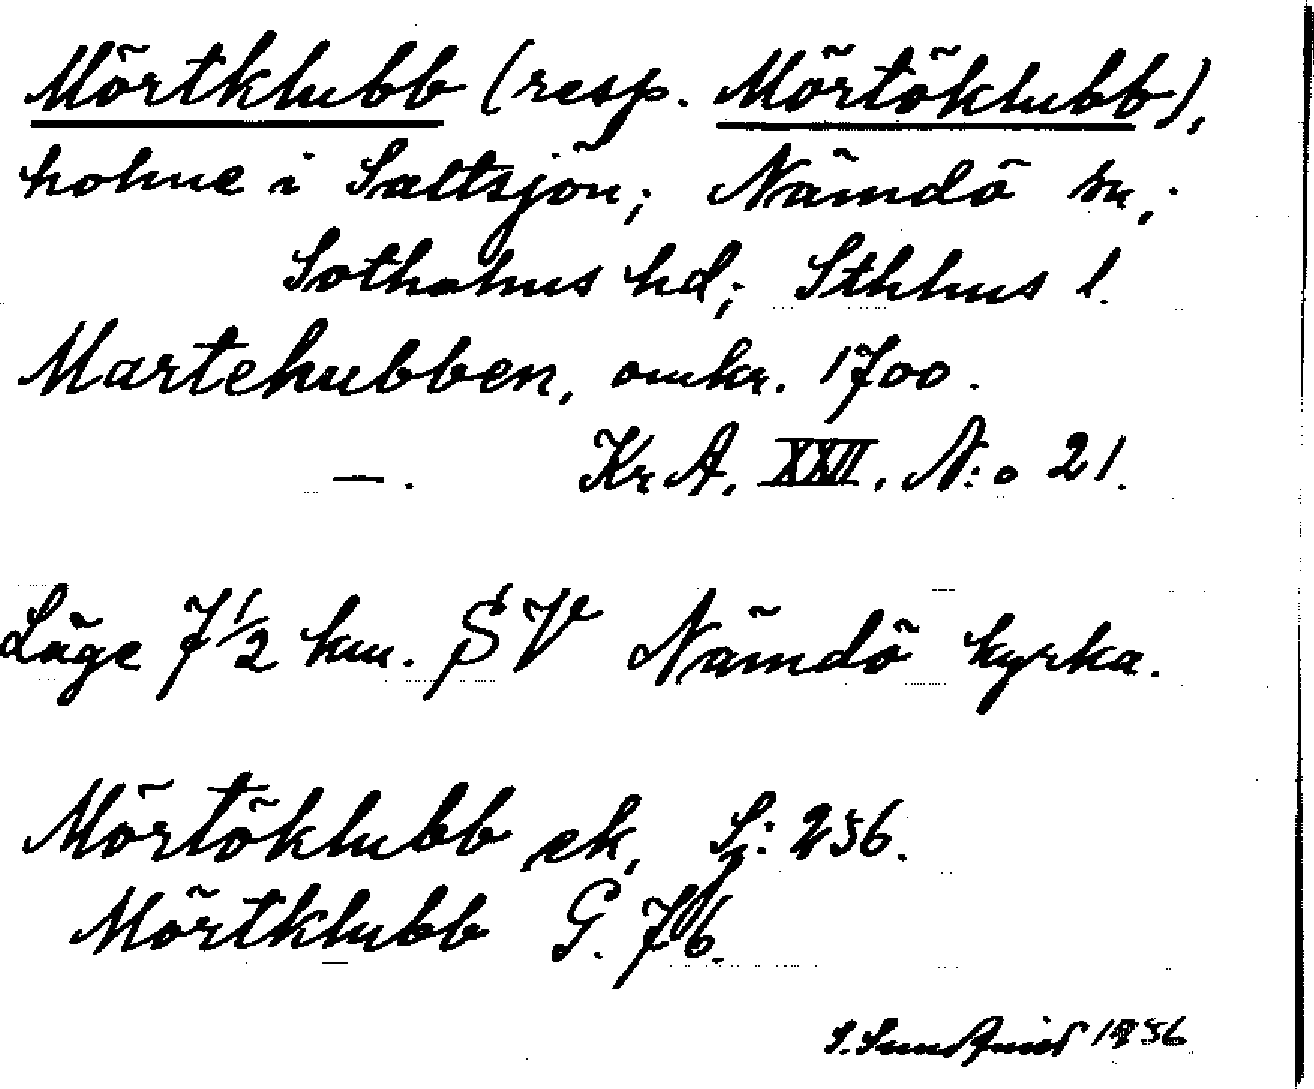 Mörtklubb (resp. Mörtöklubb),
holme i Saltsjön; Nämdö sn,;
Sotholms hd; Sthlms l.
Martehubben, omkr. 1700.
—. Kr.A. XXII. N:o 21.
Läge 7 1/2 km. SV Nämdö kyrka.
Mörtöklubb ek, S: 256.
Mörtklubb G. 76.
1956